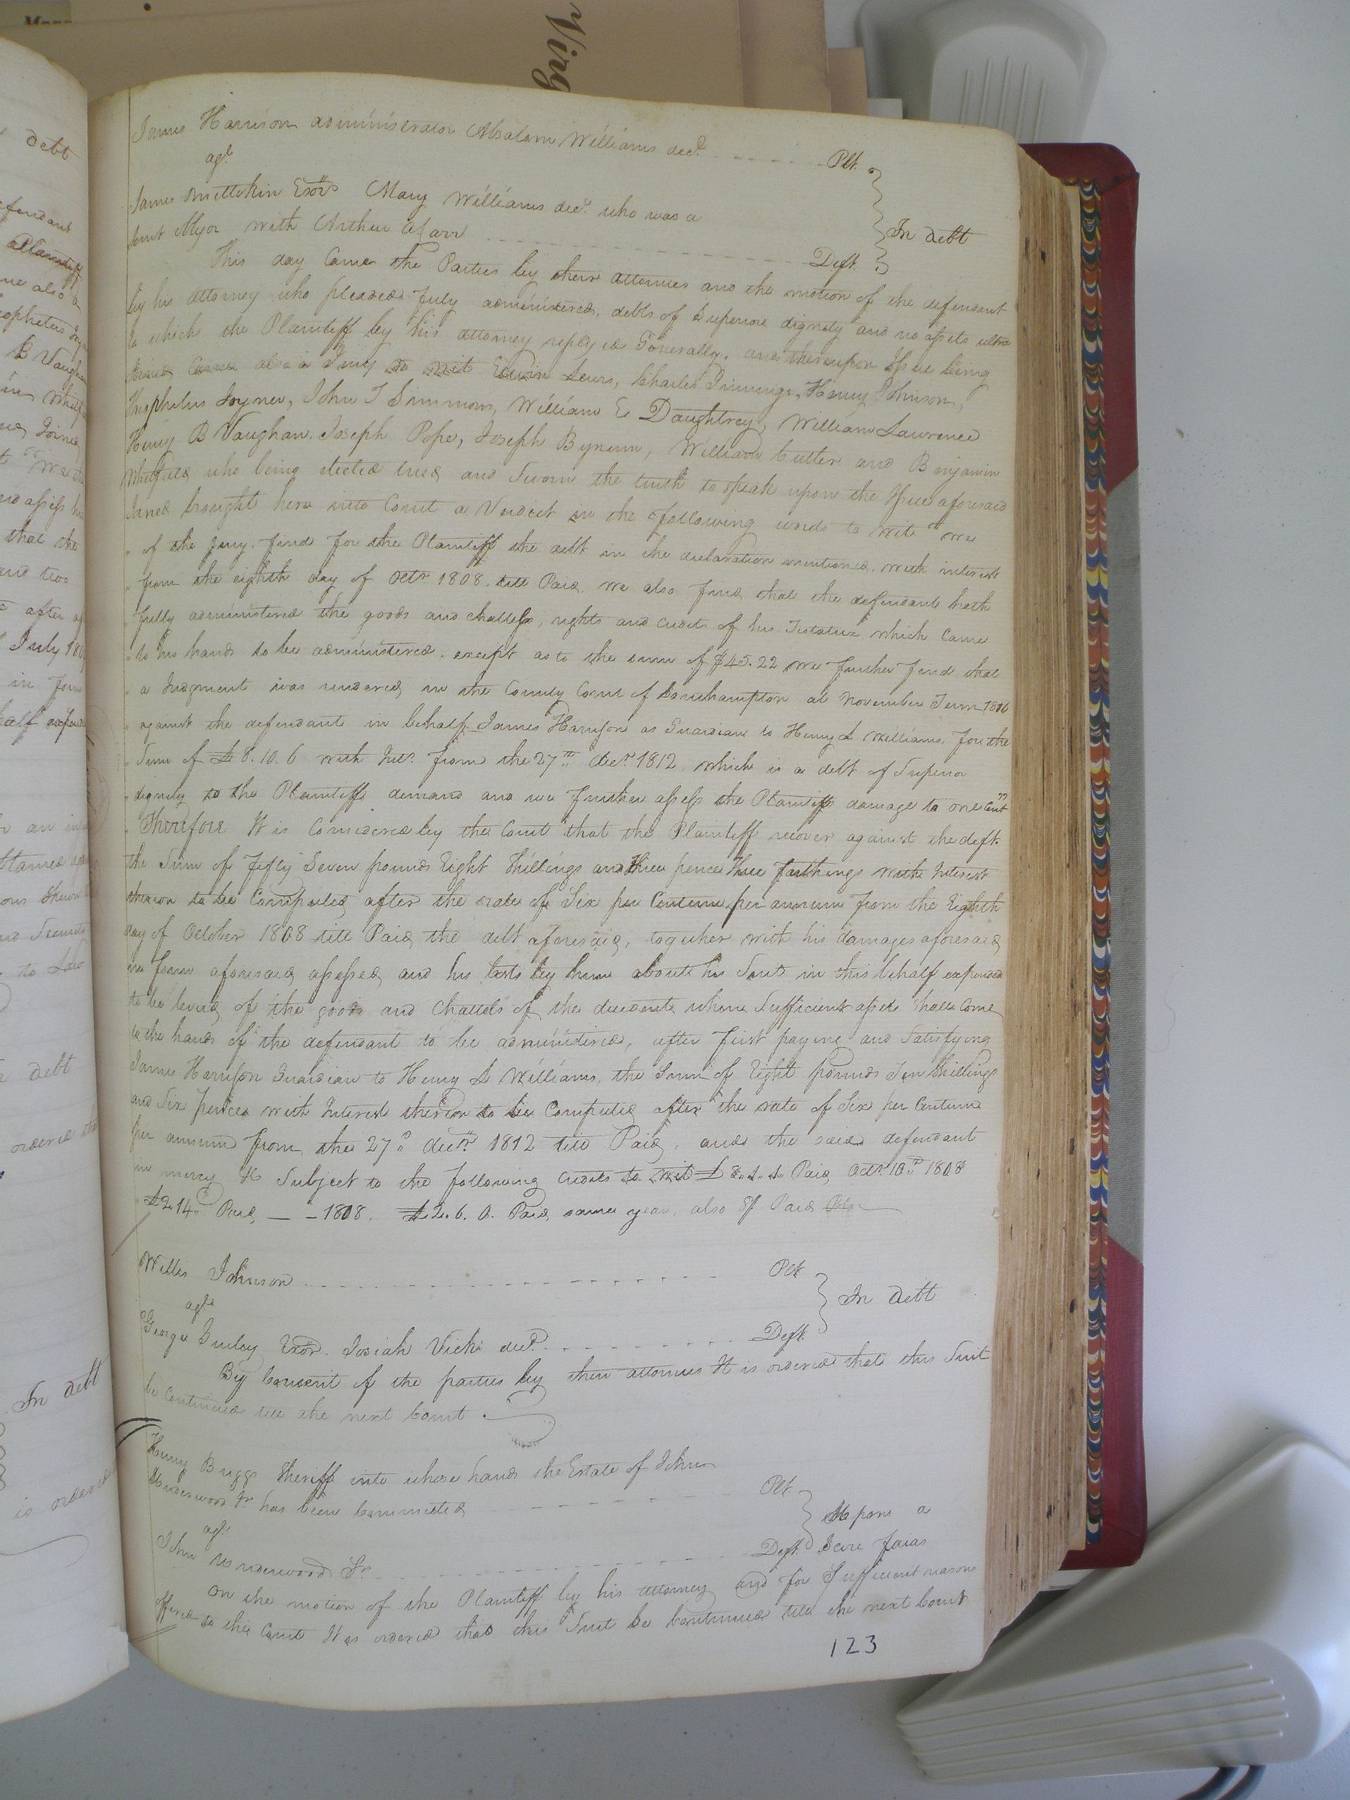 James Harrison administrator Absalom Williams decd. Plt.
agt.
James Exors Mary Williams decd. who was a
with Arthur
Deft.
In debt
This day Came the Parties by their attornies and the motion of the defendant
by his attorney who pleaded fully administered, debts of Superior dignity and no assets ultra
to which the Plaintiff by his attorney replyed Generally, and thereupon Issue being
Joined Came also a Jury to wit Edwin Lewis, Charles Simmings, Henry Johnson,
Joyner, John T Simmons, William E Daughtrey, William Lawrence
Henry B Vaughan, Joseph Pope, Joseph Bynum, William Cutler and Benjamin
Whitfield who being elected tried and Sworn the truth to speak upon the Issue aforesaid
Joined brought here into Court a Verdict in the following words to wit " we
" of the Jury find for the Plaintiff the debt in the declaration mentioned with interest
" from the eighth day of Octr 1808 till Paid we also find that the defendant hath
" fully administered the goods and chattels, rights and credits of his Testatrix which Came
" to his hands to be administered, except as to the sum of $45.22 we further find that
" a Judgment was rendered in the County Court of Southampton at November Term 1816
" against the defendant in behalf James Harrison as Guardian to Henry L Williams, for the
" Sum of £8.10.6 with Int. from the 27th decr 1812 which is a debt of Superior
" dignity to the Plaintiffs demand and we further assess the Plaintiffs damage to one Cent"
Therefore It is Considered by the Court that the Plaintiff recover against the deft.
the Sum of Fifty Seven pounds Eight Shillings and three pence three farthings with Interest
thereon to be Computed after the rate of Six per Centum per annum from the Eighth
day of October 1808 till Paid the debt aforesaid, together with his damages aforesaid
in form aforesaid assessed and his Costs by him about his Suit in this behalf expended
to be levied of the goods and Chattels of the decedent when Sufficient assets shall Come
to the hands of the defendant to be administered, after first paying and Satisfying
James Harrison Guardian to Henry L Williams, the Sum of Eight pounds Ten Shillings
and Six pence with Interest thereon to be Computed after the rate of Six per Centum
per annum from the 27th decr 1812 till Paid, and the said defendant
in mercy &c Subject to the following credits to wit £8.. Paid Octr 10th 1808
£2.14. Paid — 1808. £2.6.0. Paid same year, also Paid
Willis Johnson Plt
agt.
George Gurley Exor. Josiah Vick decd. Deft.
In debt
By Consent of the parties by their attornies It is ordered that this Suit
be Continued till the next Court.
Henry Briggs Sheriff into whose hands the Estate of John
Underwood Jr has been Committed Plt
agt.
John Underwood Sr. Deft.
Upon a
Scire facias
On the motion of the Plaintiff by his attorney and for Sufficient reasons
offered to the Court It is ordered that this Suit be Continued till the next Court
123
debt
Plaintiff
me also a
B Vaughan
that the
and two
after
July
in form
half
an
debt
ordered that
In debt
is ordered
Virg